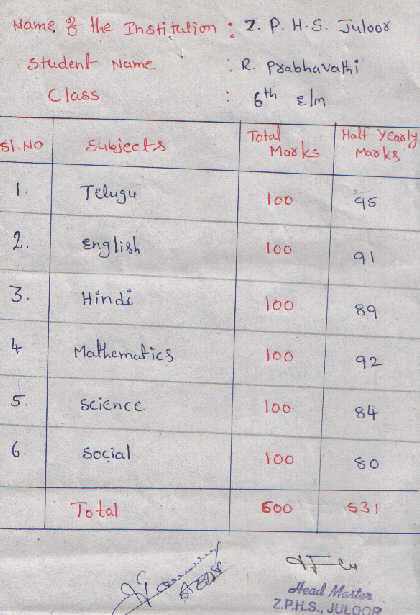 Name of the Institution : Z. P. H. S. Juloor
Student Name : R. Prabhavathi
Class : 6th E/m
Sl. No Subjects Total Marks Half Yearly Marks
1. Telugu 100 95
2. English 100 91
3. Hindi 100 89
4 Mathematics 100 92
5. Science 100 84
6 Social 100 80
Total 600 531
Head Master
Z.P.H.S., JULOOR